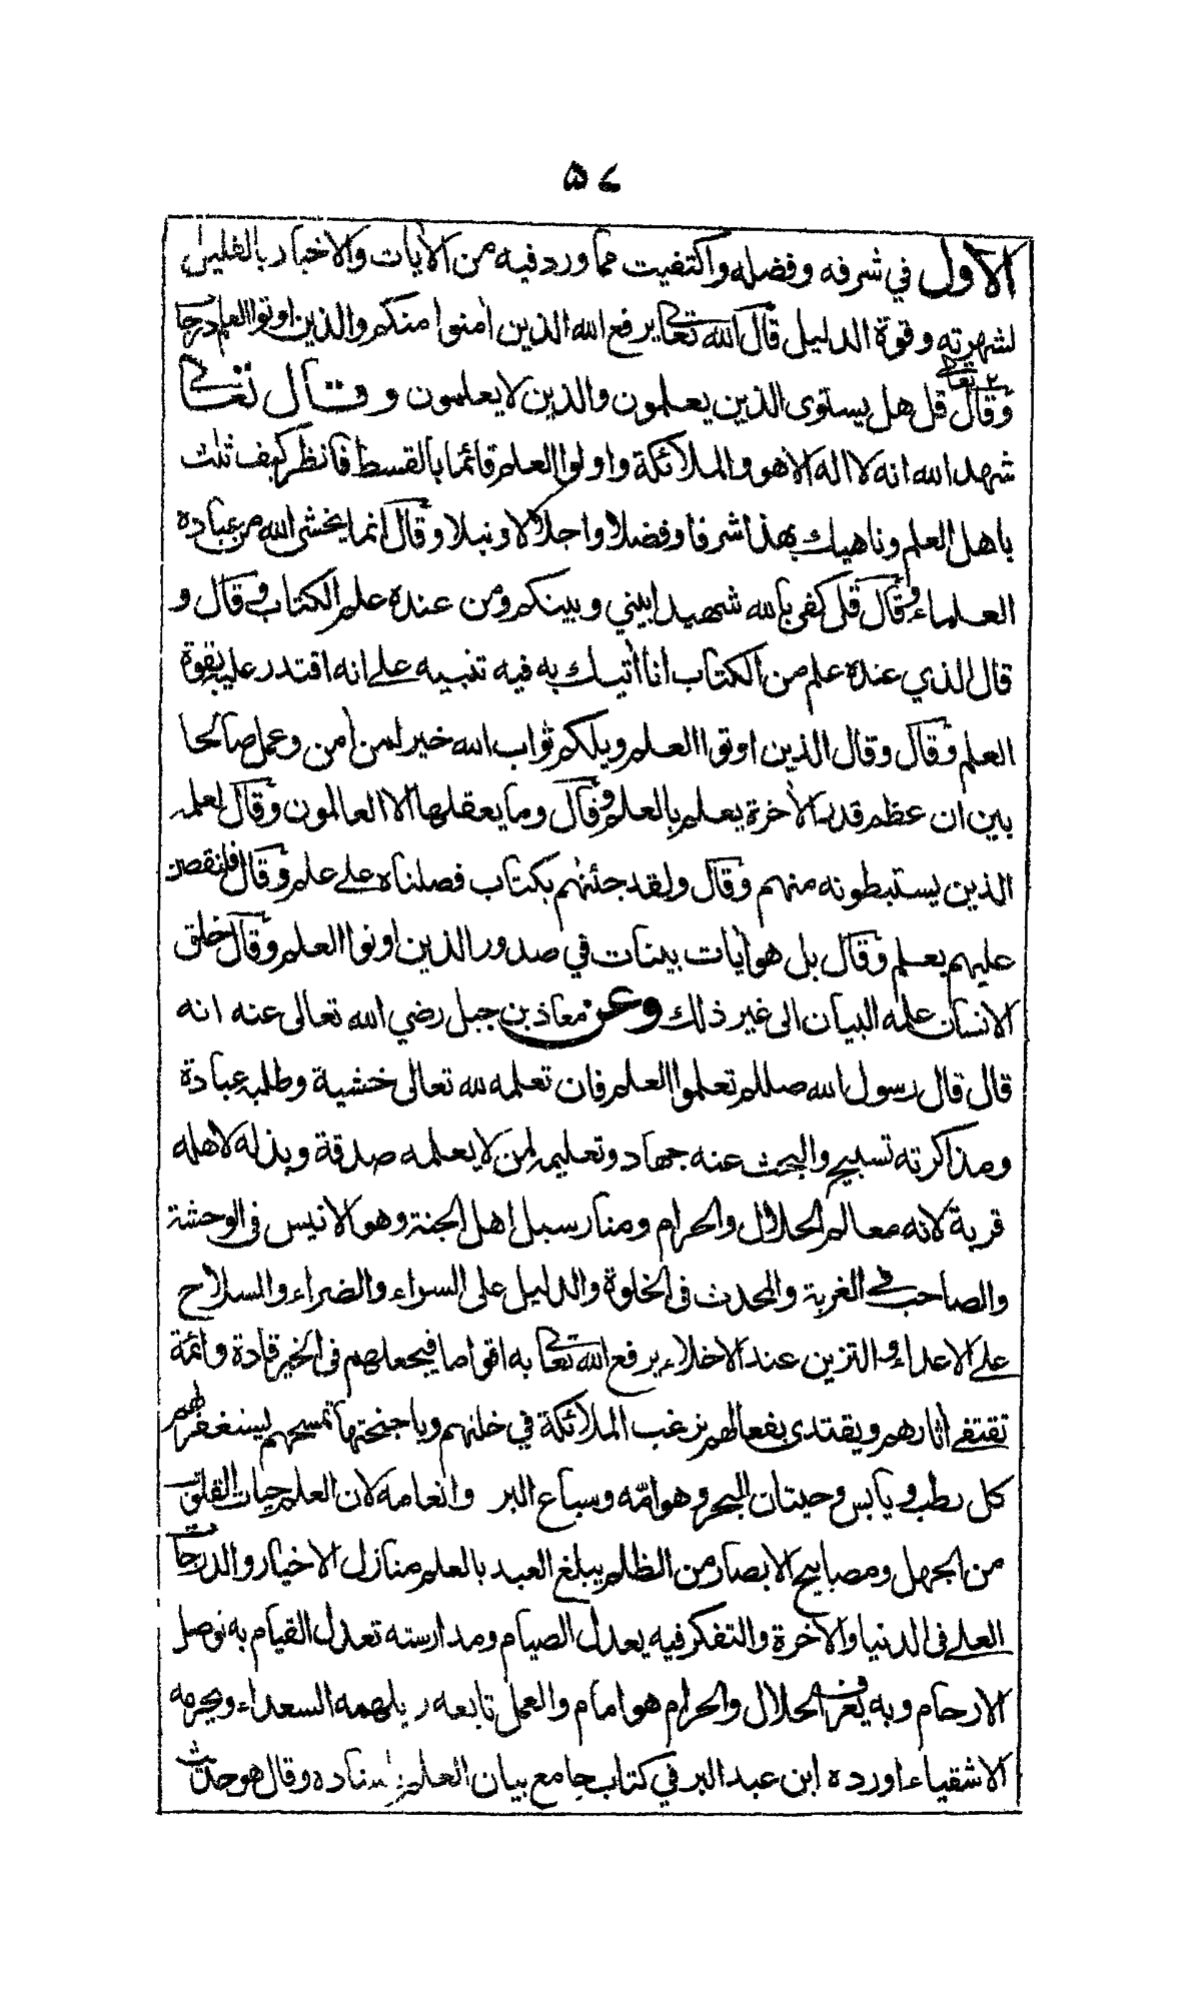 ٥٧
الاول في شرفه وفضله واكتفيت مما ورد فيه من الآيات والاخبار بالقليل
لشهرته وقوة الدليل قال الله تعالى يرفع الله الذين اٰمنوا منكم والذين اوتوا العلم درجات
وقال تعالى قل هل يستوى الذين يعلمون والذين لا يعلمون وقال تعالى
شهد الله انه لا اله الا هو والملائكة واولوا العلم قائما بالقسط فانظر كيف ثلث
باهل العلم وناهيك بهذا شرفا وفضلا واجلالا ونبلا وقال انما يخشى الله من عباده
العلماء وقال قل كفى بالله شهيدا بيني وبينكم ومن عنده علم الكتاب وقال و
قال الذي عنده علم من الكتاب انا اٰتيك به فيه تنبيه على انه اقتدر عليه بقوة
العلم وقال وقال الذين اوتوا العلم ويلكم ثواب الله خير لمن اٰمن وعمل صالحا
بين ان عظم قدر الاٰخرة يعلم بالعلم وقال وما يعقلها الا العالمون وقال لعلمه
الذين يستبطونه منهم وقال ولقد جئنهم بكتاب فصلناه على علم وقال فلنقصن
عليهم بعلم وقال بل هو اٰيات بينات في صدور الذين اوتوا العلم وقال خلق
الانسان علمه البيان الى غير ذلك وعن معاذ بن جبل رضي الله تعالى عنه انه
قال قال رسول الله صللم تعلموا العلم فان تعلمه لله تعالى خشية وطلبه عبادة
ومذاكرته تسبيح والبحث عنه جهاد وتعليمه لمن لا يعلمه صدقة وبذله لاهله
قربة لانه معالم الحلال والحرام ومنار سبل اهل الجنة وهو الانيس فى الوحشة
والصاحب في الغربة والمحدث فى الخلوة والدليل على السراء والضراء والسلاح
على الاعداء والتزين عند الاخلاء يرفع الله تعالى به اقواما فيجعلهم فى الخير قادة وائمة
تقتفى اٰثارهم ويقتدى بفعالهم تزغب الملائكة في خلتهم وباجنحتها تمسحهم يستغفر لهم
كل رطب ويابس وحيتان البحر وهوامّه وسباع البر وانعامه لان العلم حيات القلوب
من الجهل ومصابيح الابصار من الظلم يبلغ العبد بالعلم منازل الاخيار والدرجات
العلى فى الدنيا والآخرة والتفكر فيه يعدل الصيام ومدارسته تعدل القيام به توصل
الارحام وبه يعرف الحلال والحرام هو امام والعمل تابعه يلهمه السعداء ويحرمه
الاشقياء اورده ابن عبد البر في كتاب جامع بيان العلم وقال هو حديث